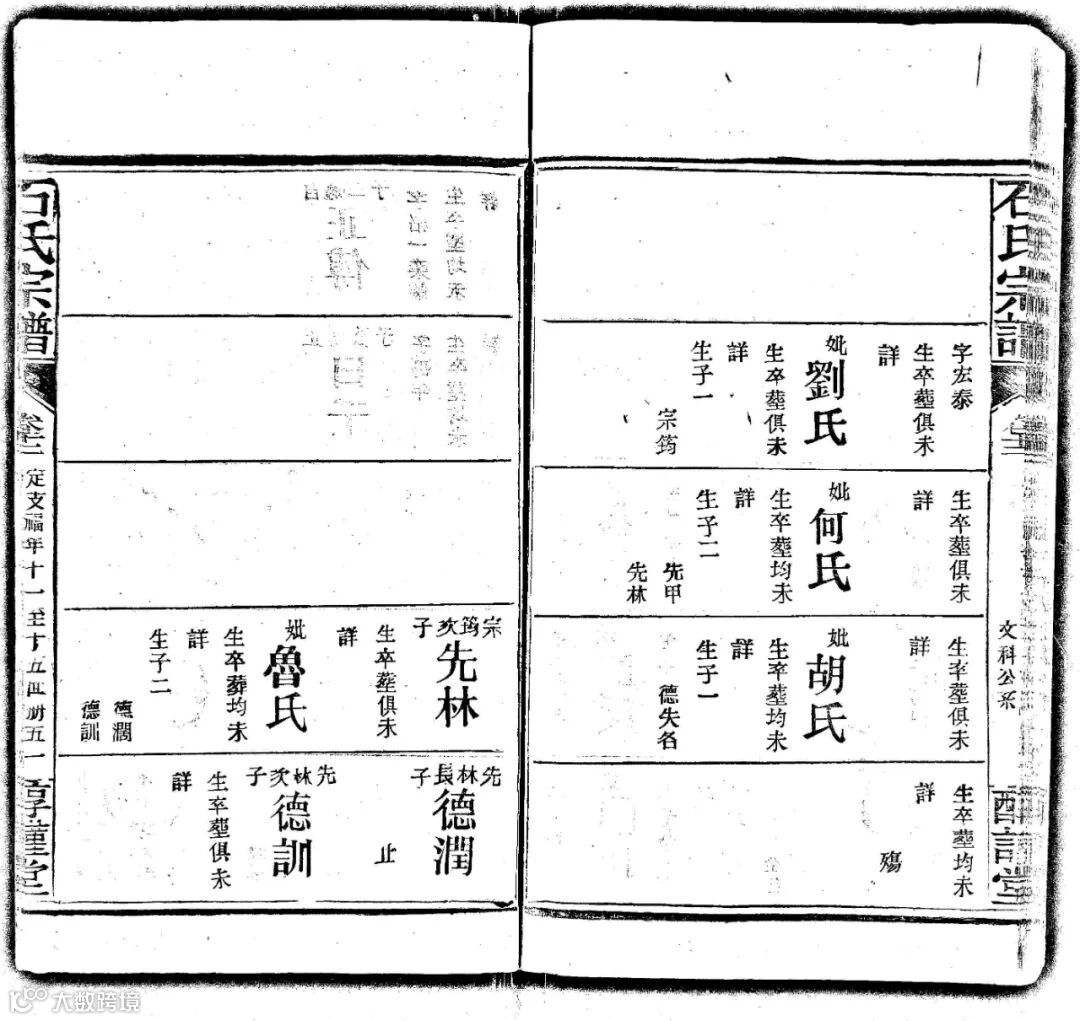 石氏宗譜
卷十二
文科公系
酬詩堂
字宏泰
生卒塟俱未
詳
妣
劉氏
生卒塟俱未
詳
生子一
宗筠
生卒塟俱未
詳
妣
何氏
生卒塟均未
詳
生子二
先甲
先林
生卒塟俱未
詳
妣
胡氏
生卒塟均未
詳
生子一
德失名
生卒塟均未
詳
殤
宗筠次子
先林
生卒塟俱未
詳
妣
魯氏
生卒葬均未
詳
生子二
德潤
德訓
先林長子
德潤
止
先林次子
德訓
生卒塟俱未
詳
石氏宗譜
卷十二
定支福年十一至十五世册五一
大数跨境